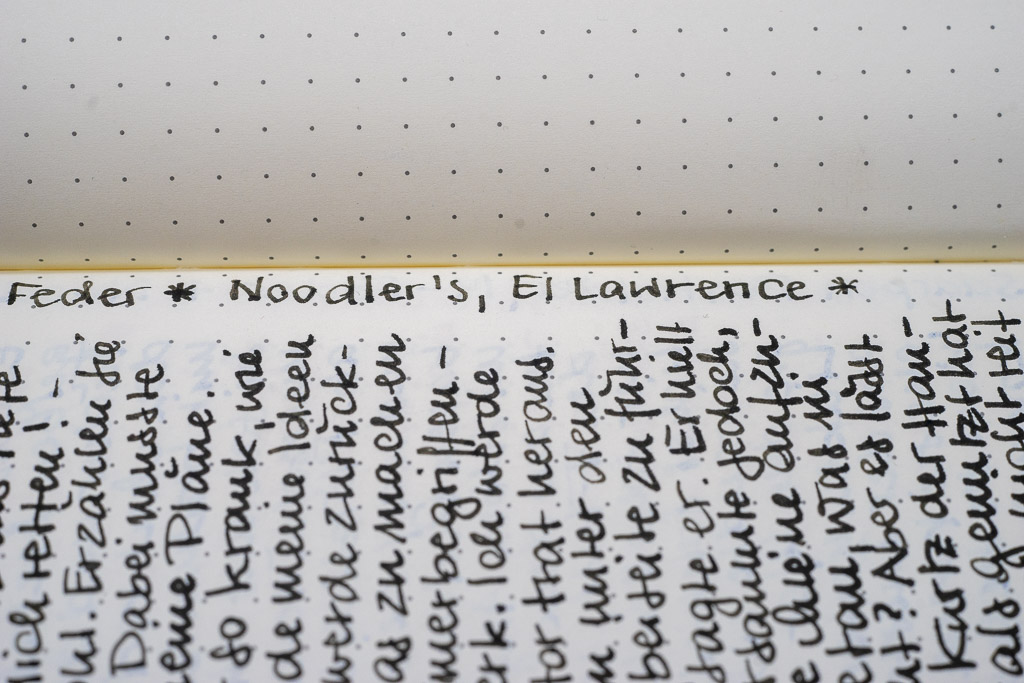 Feder * Noodler's, El Lawrence *
lich retten! -
hl. Erzählen Sie
Dabei musste
eine Pläne.
so krank, wie
de meine Ideen
werde zurück-
as zu machen
mer begriffen -
rk. Ich werde
tor trat heraus.
m unter den
beiseite zu führ-
sagte er. Er hielt
rsäumte jedoch,
e keine aufzu-
etan was wi
ht? Aber es lässt
Kurtz der Han-
als genützt hat
nicht reit